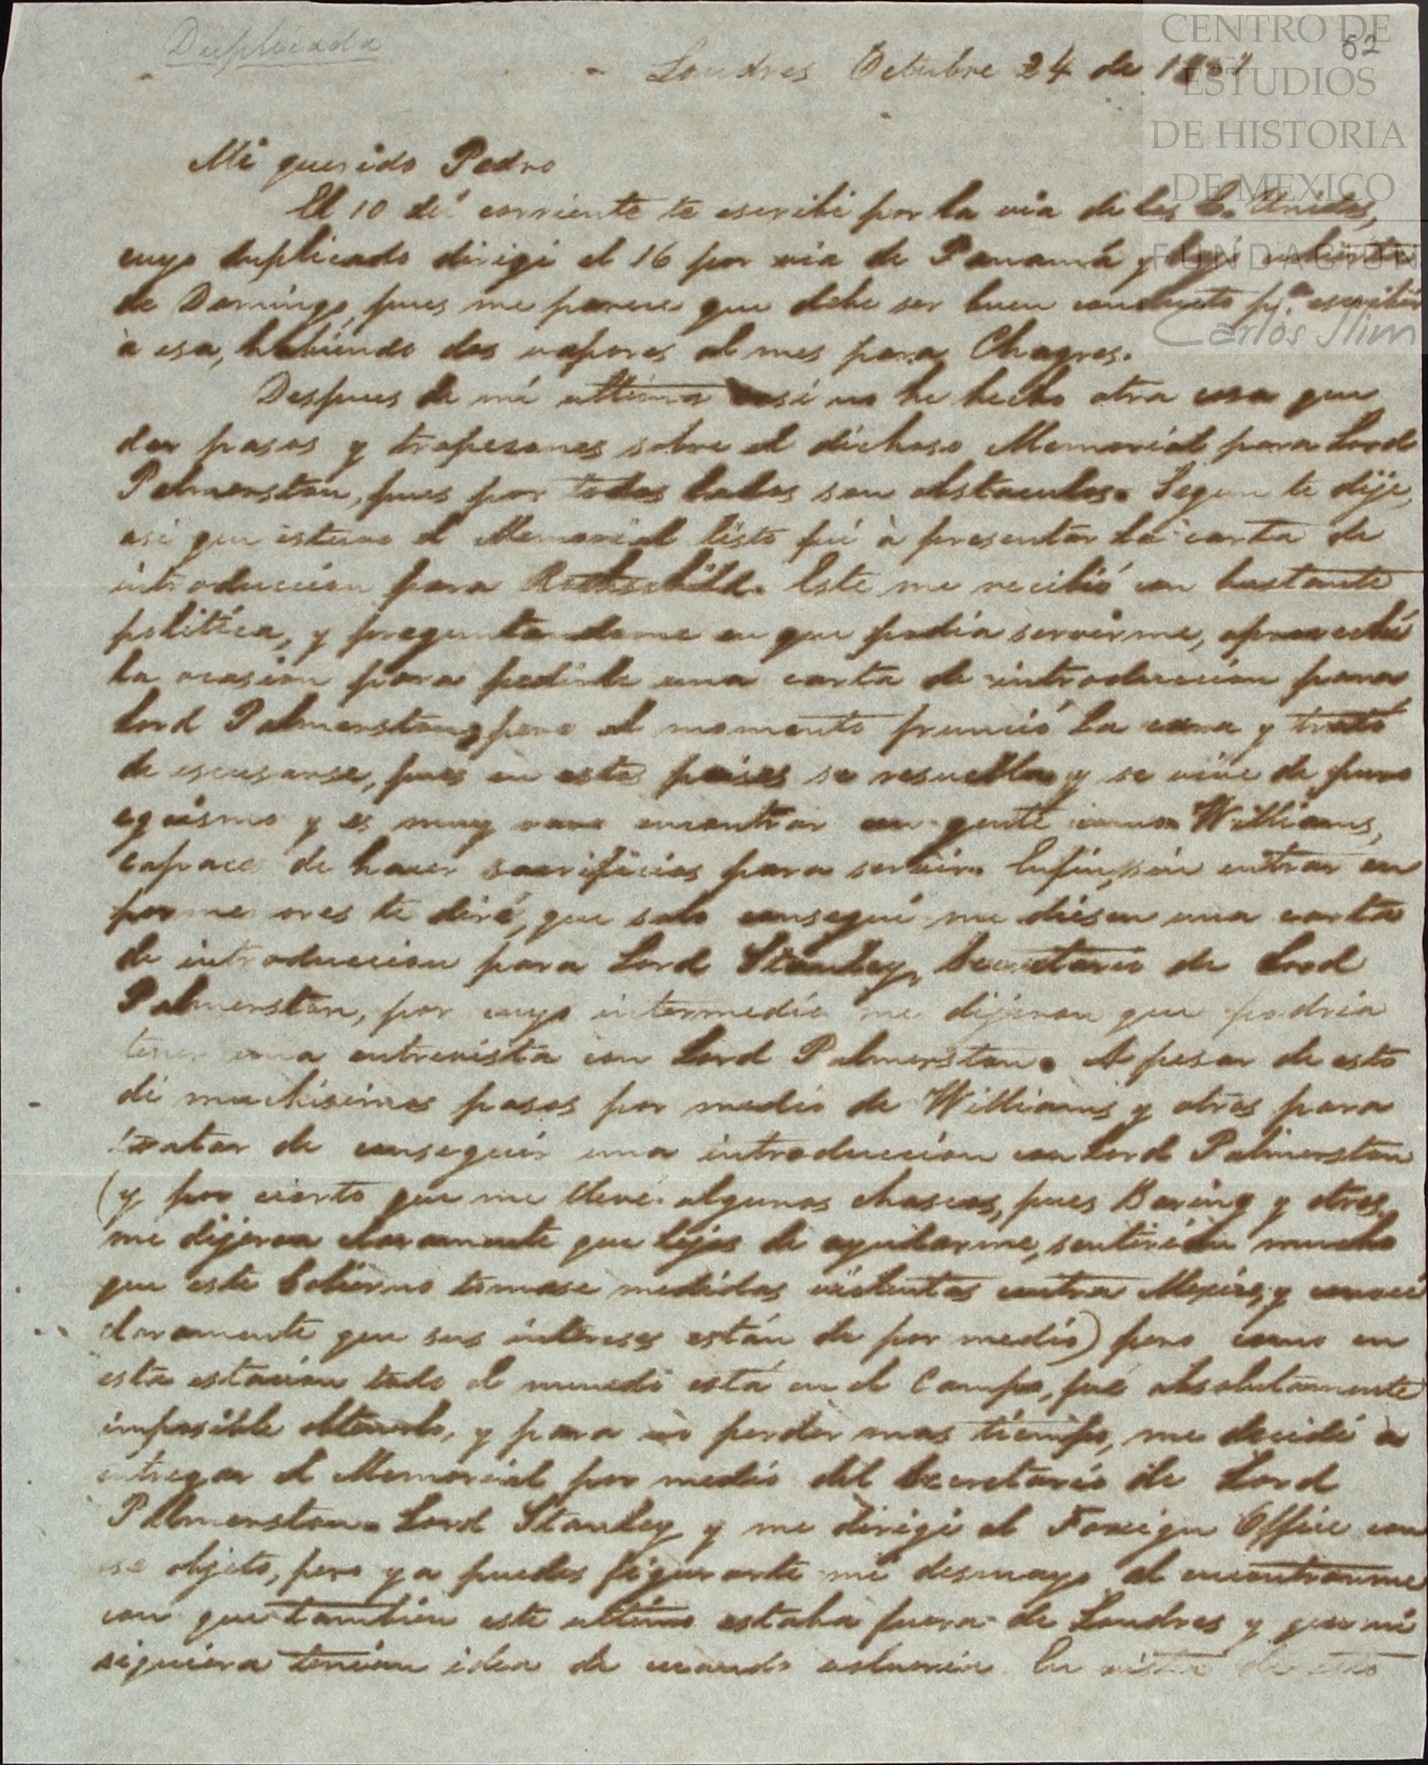 Duplicada
62
Londres Octubre 24 de 18
Mi querido Pedro
El 10 del corriente te escribi por la via de los E. Unidos,
cuyo duplicado dirigi el 16 por via de Panamá y bajo cubierta
de Domingo, pues me parece que debe ser buen conducto pa. escribir
à esa, habiendo dos vapores al mes para Chagres.
Despues de mi ultima casi no he hecho otra cosa que
dar pasos y tropesones sobre el dichoso Memorial para Lord
Palmerston, pues por todos lados son obstaculos. Segun te dije,
asi que estuvo el Memorial listo fui à presentar la carta de
introduccion para Rothschild. Este me recibió con bastante
politica, y preguntandome en que podia servirme, aproveché
la ocasion para pedirle una carta de introduccion para
Lord Palmerston, pero al momento frunció la cara y trató
de escusarse, pues en estos paises se resuella y se vive de puro
egoismo y es muy raro encontrar con gente como Williams,
capace de hacer sacrificios para servir. Enfin, sin entrar en
pormenores te diré, que solo conseguí me diesen una carta
de introduccion para Lord Stanley, Secretario de Lord
Palmerston, por cuyo intermedio me dijeron que podria
tener una entrevista con Lord Palmerston. A pesar de esto
di muchisimos pasos por medio de Williams y otros para
tratar de conseguir una introduccion con Lord Palmerston
(y por cierto que me llevé algunos chascos, pues Baring y otros
me dijeron claramente que lejos de ayudarme, sentirián mucho
que este Gobierno tomase medidas violentas contra Mexico, y conocí
claramente que sus intereses están de por medio) pero como en
esta estacion todo el mundo está en el Campo, fué absolutamente
imposible obtenerlo, y para no perder mas tiempo, me decidí a
entregar el Memorial por medio del Secretario de Lord
Palmerston. Lord Stanley y me dirigí al Foreign Office con
ese objeto, pero ya puedes figurarte mi desmayo al encontrarme
con que tambien este ultimo estaba fuera de Londres y que ni
siquiera tenian idea de cuando volveria. En vista de esto
CENTRO DE
ESTUDIOS
DE HISTORIA
DE MEXICO
FUNDACIÓN
Carlos Slim